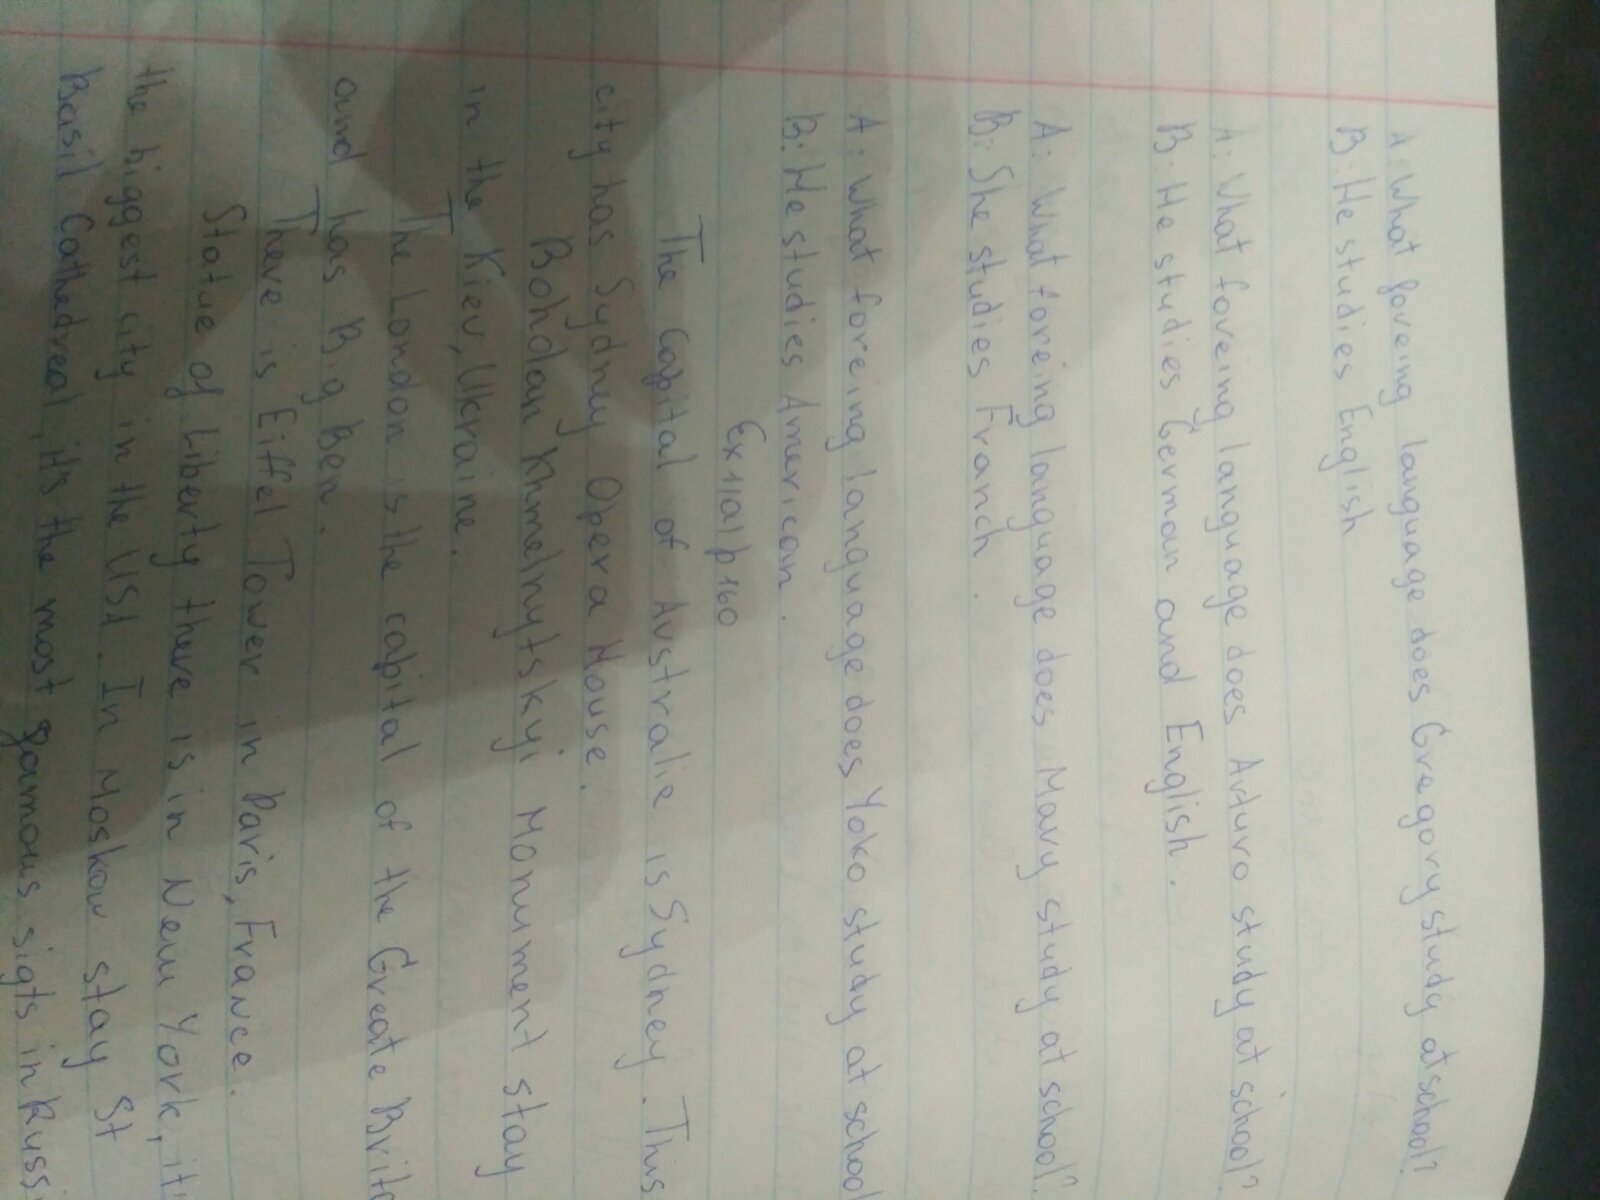 A: What foreing language does Gregory study at school?
B: He studies English
A: What foreing language does Arturo study at school?
B: He studies German and English.
A: What foreing language does Mary study at school?
B: She studies Franch.
A: What foreing language does Yoko study at school
B: He studies American.
Ex1|a|p160
The capital of Australie is Sydney. This
city has Sydney Opera House.
Bohdan Khmelnytskyi Monument stay
in the Kiev, Ukraine.
The London is the capital of the Greate Brita
and has Big Ben.
There is Eiffel Tower in Paris, France.
Statue of Liberty there is in New York, it'
the biggest city in the USA. In Moskow stay St
Basil Cathedreal, it's the most gamous sigts in Russi